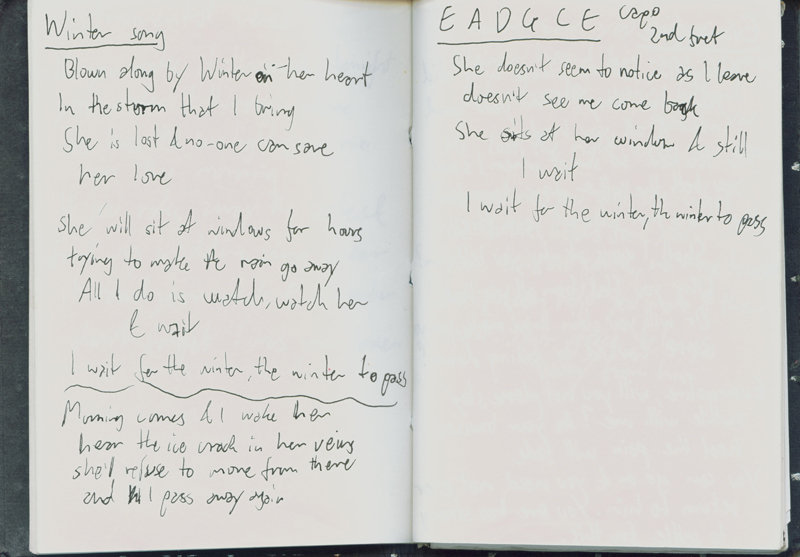 Winter song
Blown along by Winter in her heart
In the storm that I bring
She is lost & no-one can save
her love
She will sit at windows for hours
trying to make the rain go away
All I do is watch, watch her
& wait
I wait for the winter, the winter to pass
Morning comes & I wake her
hear the ice crack in her veins
she'll refuse to move from there
and I pass away again
E A D G C E capo
2nd fret
She doesn't seem to notice as I leave
doesn't see me come back
She sits at her window & still
I wait
I wait for the winter, the winter to pass